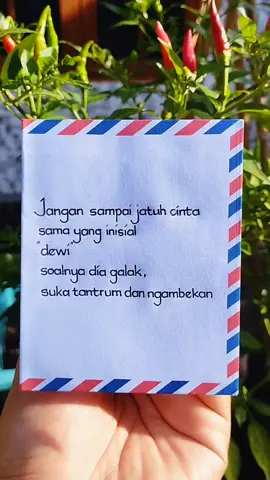 Jangan sampai jatuh cinta
sama yang inisial
"dewi"
soalnya dia galak,
suka tantrum dan ngambekan